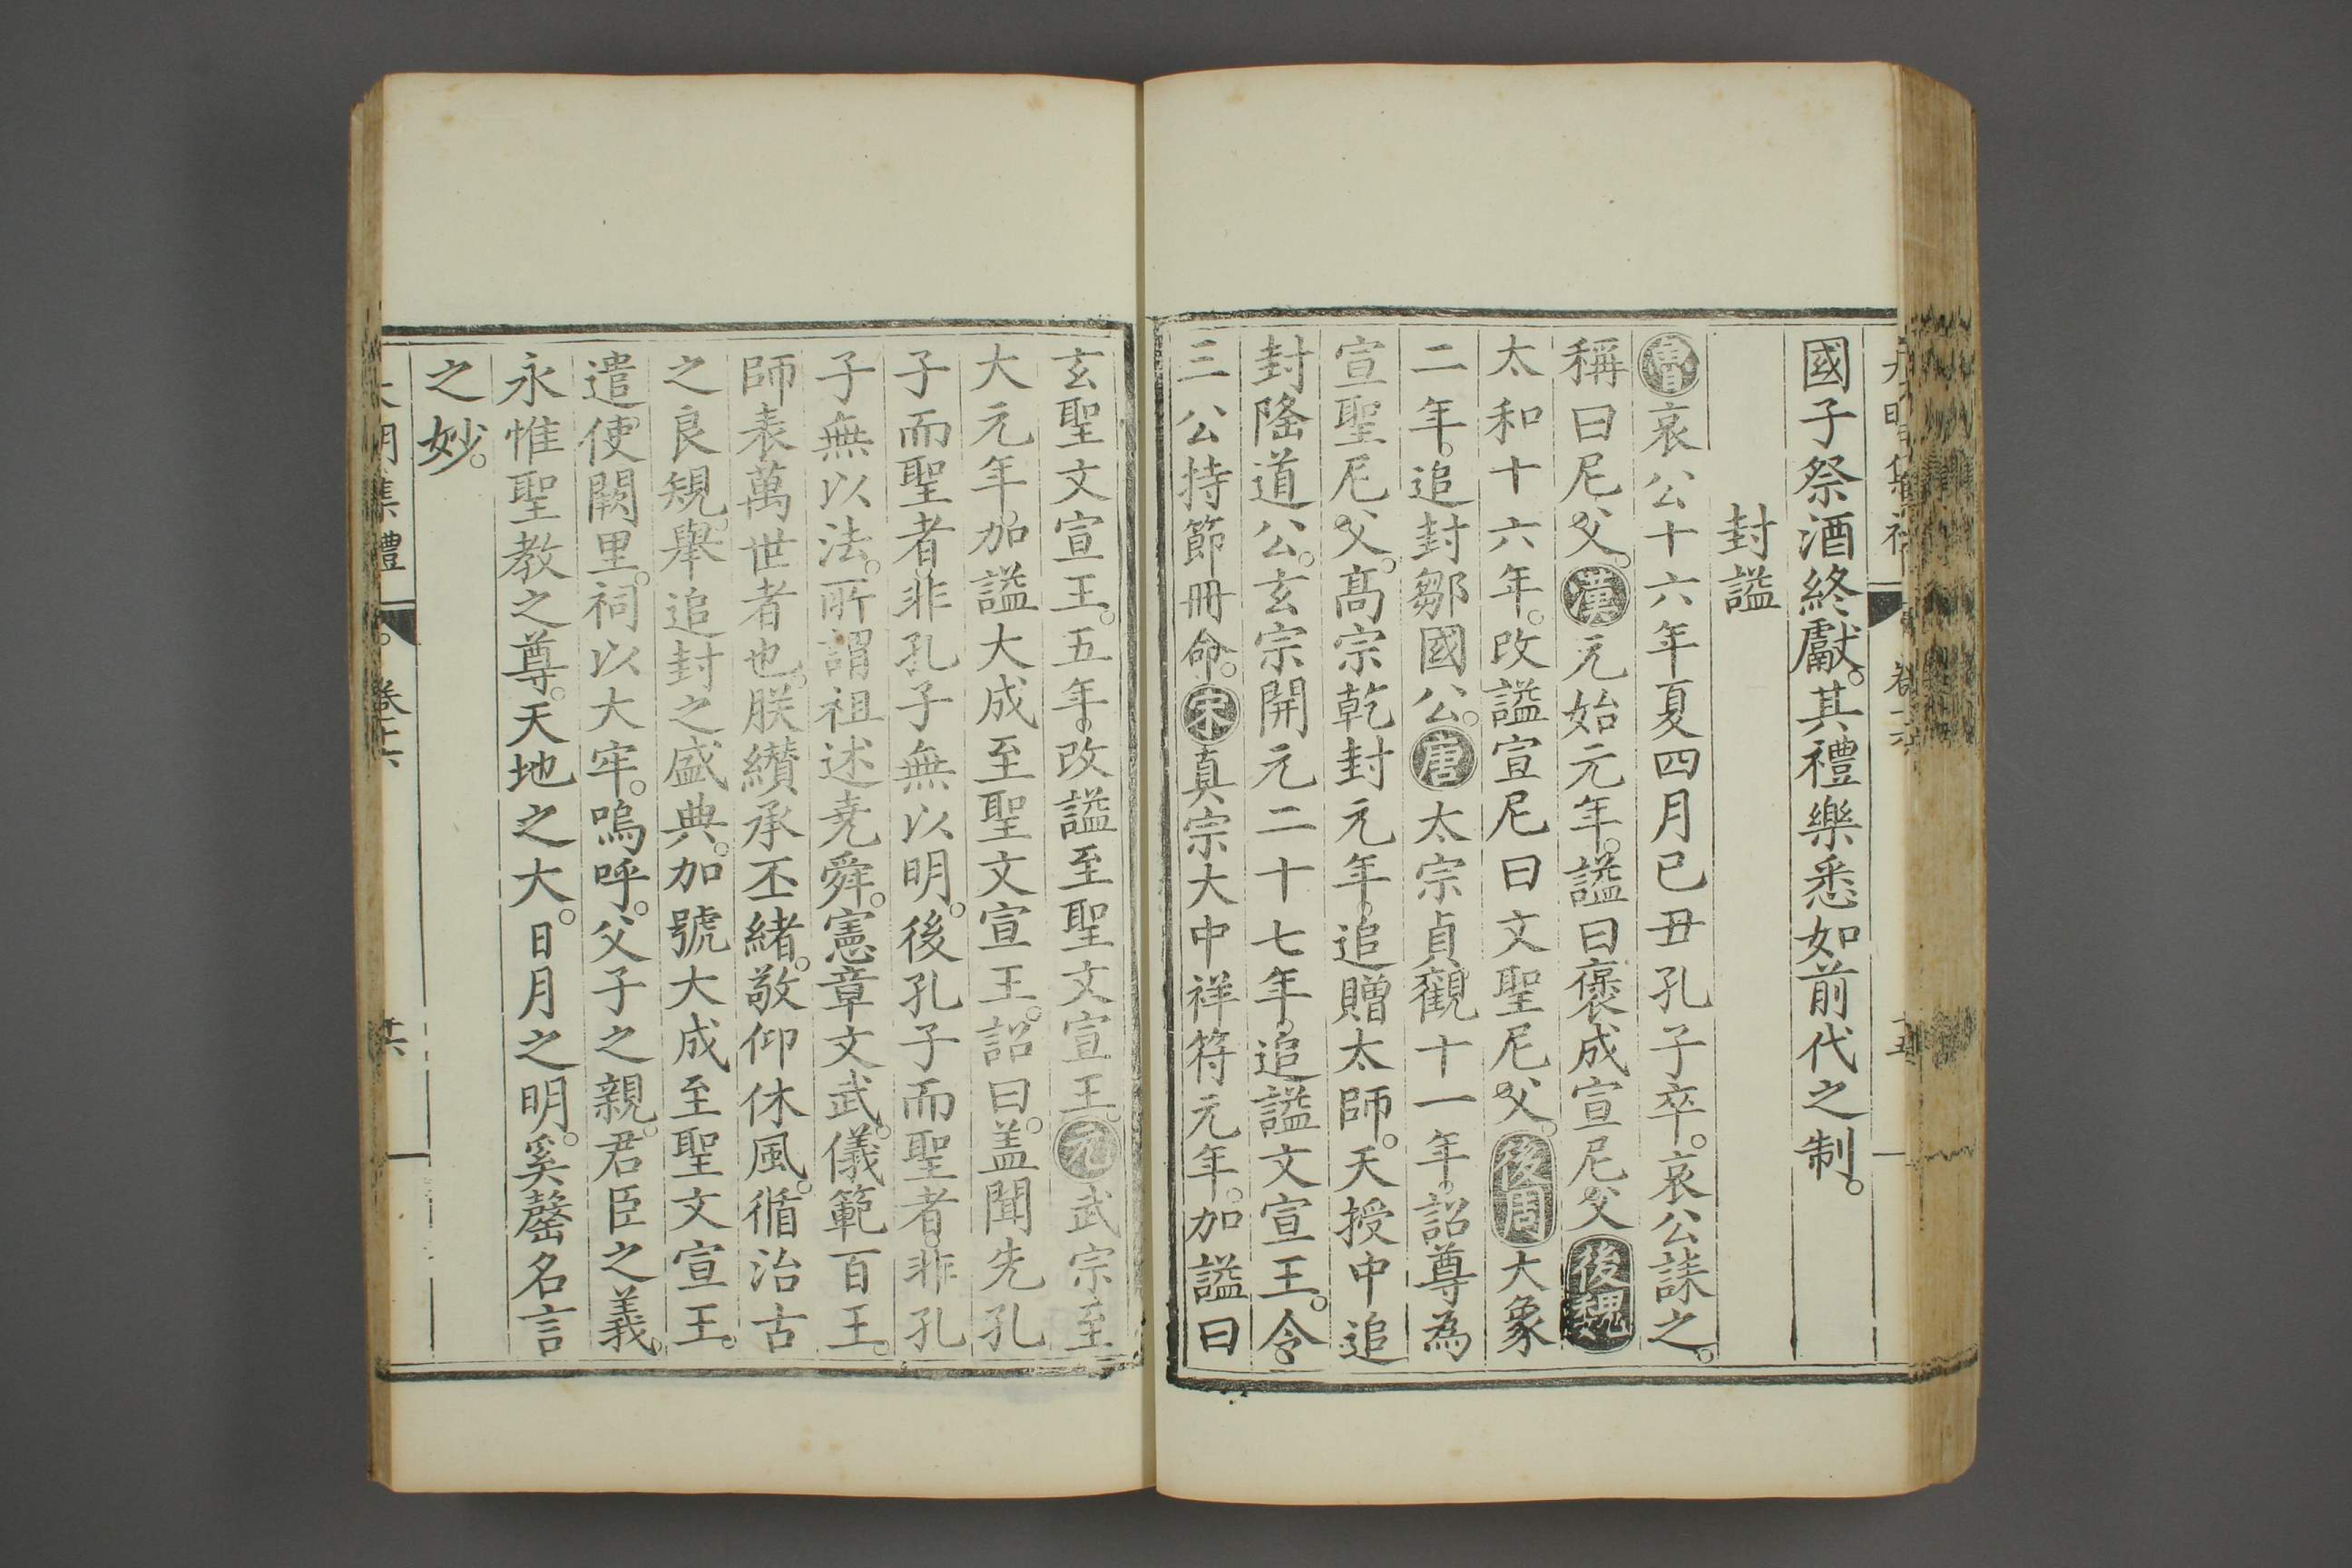 國子祭酒終獻。其禮樂悉如前代之制。
封謚
魯哀公十六年夏四月已丑孔子卒。哀公誄之。
稱曰尼父。漢元始元年。謚曰褒成宣尼父後魏
太和十六年。改謚宣尼曰文聖尼父。後周大象
二年。追封鄒國公。唐太宗貞觀十一年。詔尊為
宣聖尼父。髙宗乾封元年。追贈太師。天授中追
封隆道公。玄宗開元二十七年。追謚文宣王。令
三公持節冊命。宋真宗大中祥符元年。加謚曰
玄聖文宣王。五年。改謚至聖文宣王。元武宗至
大元年。加謚大成至聖文宣王。詔曰。盖聞先孔
子而聖者。非孔子無以明。後孔子而聖者。非孔
子無以法。所謂祖述堯舜。憲章文武。儀範百王。
師表萬世者也。朕纉承丕緒。敬仰休風。循治古
之良䂓。舉追封之盛典。加號大成至聖文宣王。
遣使闕里。祠以大牢。嗚呼。父子之親。君臣之義。
永惟聖教之尊。天地之大。日月之明。奚罄名言
之妙。
大明集禮 卷十六 十六